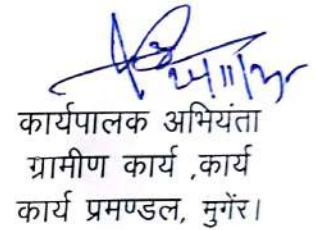 24/11/25
कार्यपालक अभियंता
ग्रामीण कार्य ,कार्य
कार्य प्रमण्डल, मुगेंर।